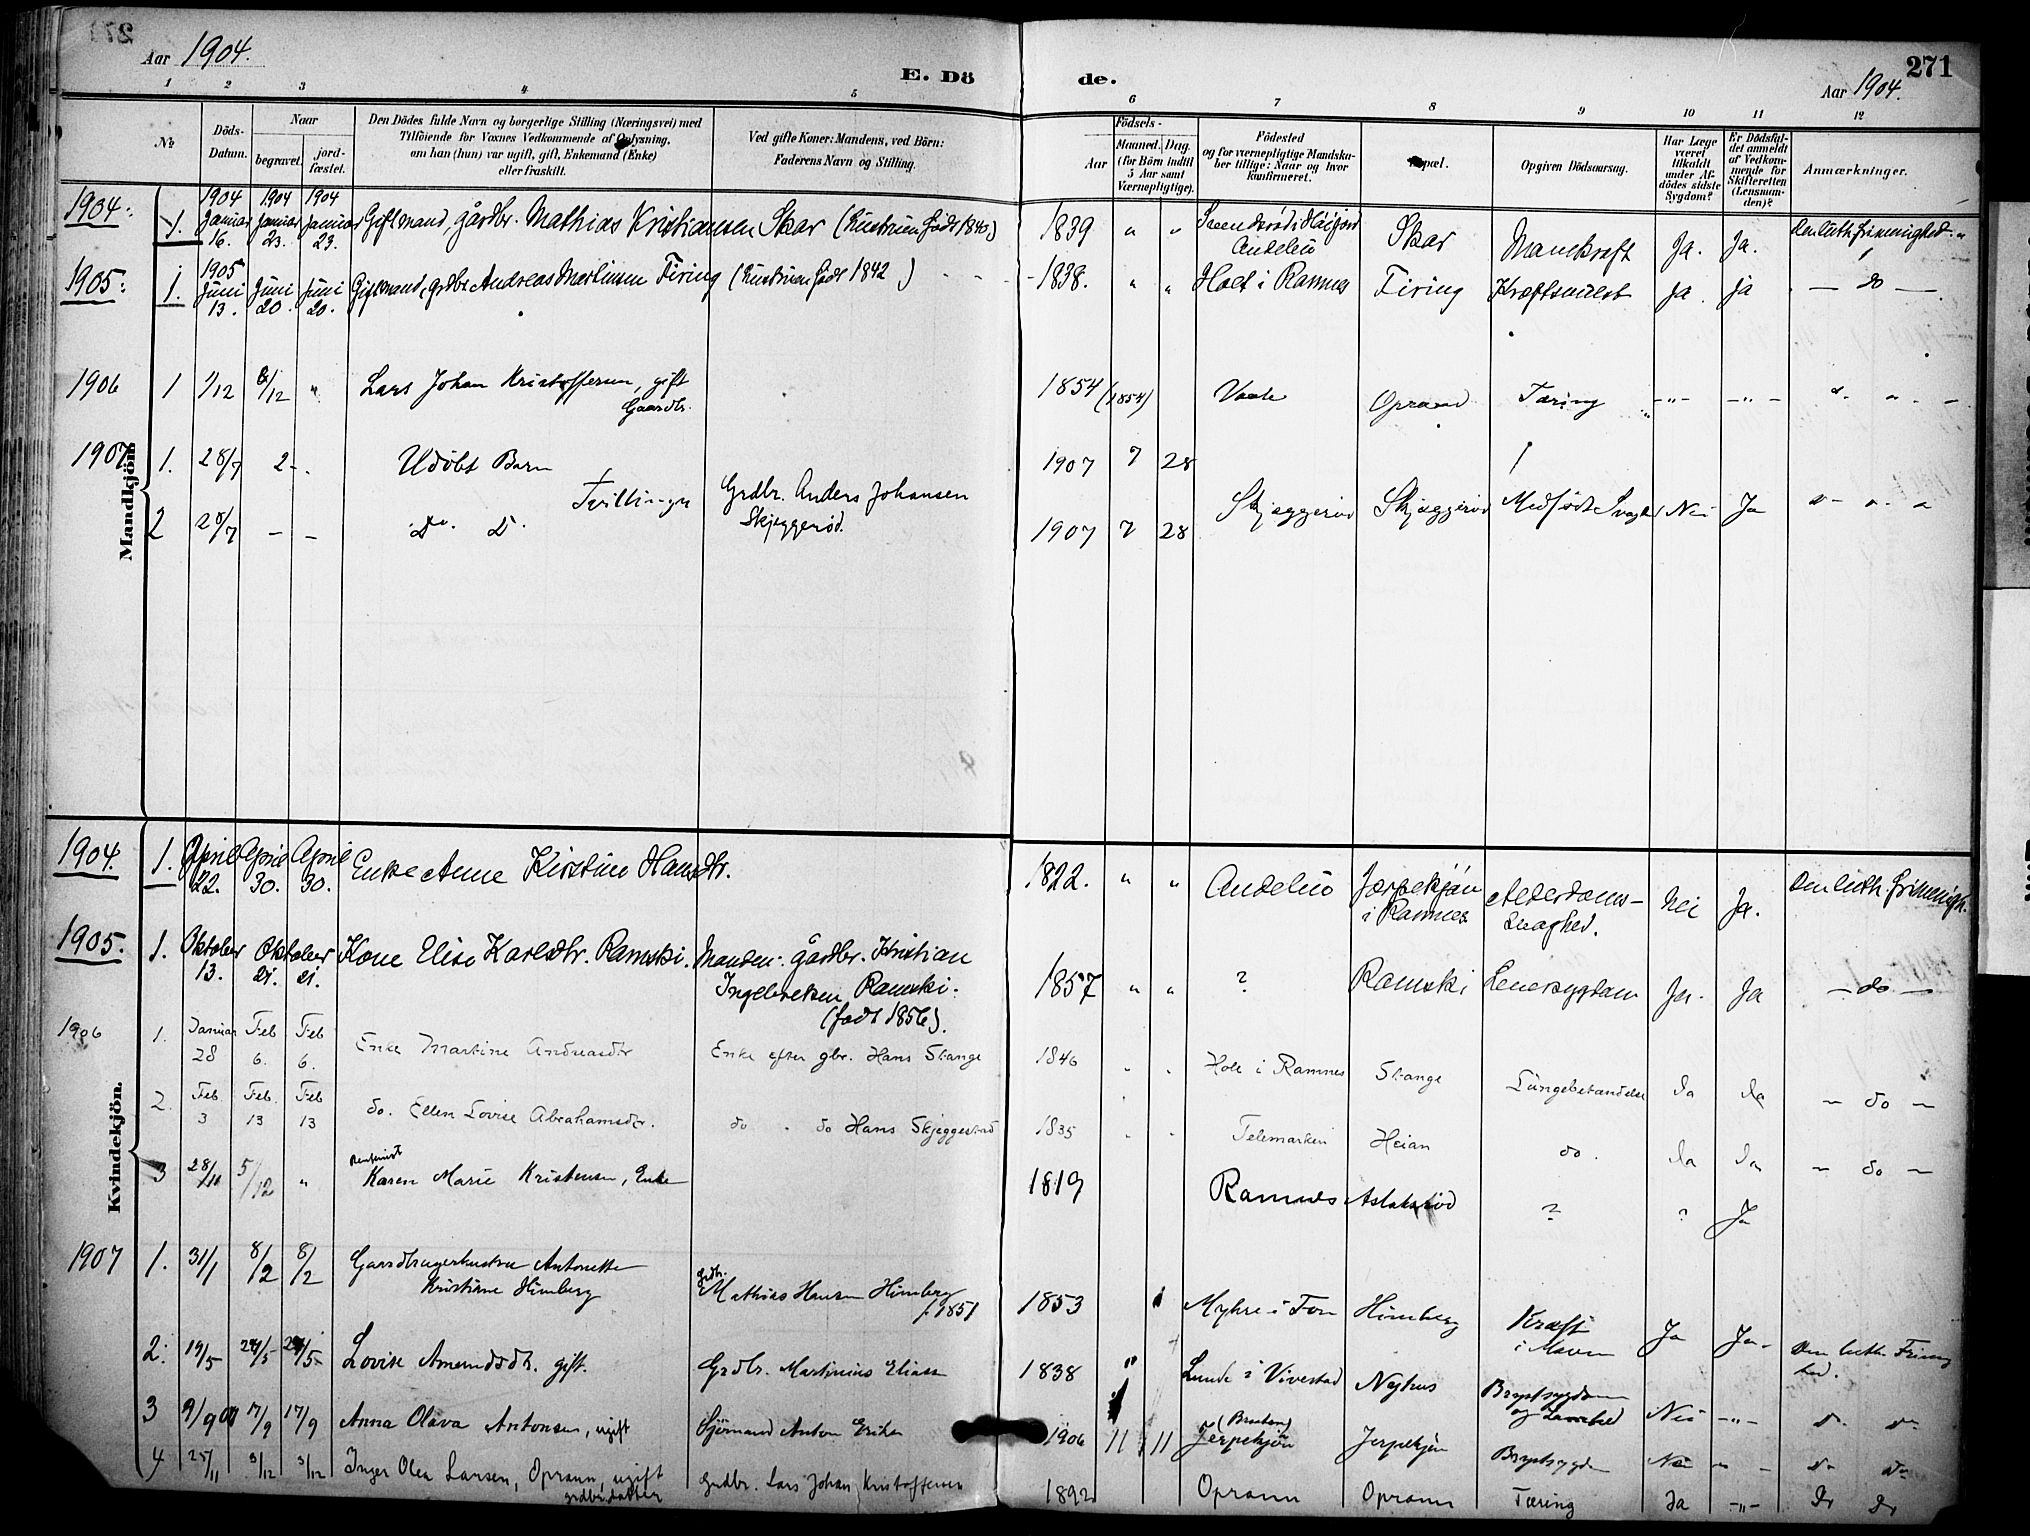 Aar 1904.
E. Dö
de.
271
Aar 1904.
1 2 3 4 5 6 7 8 9 10 11 12
№
Döds-
Datum.
Naar
begravet.
jord-
fæstet.
Den Dödes fulde Navn og borgerlige Stilling (Næringsvei) med
Tilföiende for Voxnes Vedkommende af Oplysning,
om han (hun) var ugift, gift, Enkemand (Enke)
eller fraskilt.
Ved gifte Koner: Mandens, ved Börn:
Faderens Navn og Stilling.
Födsels-
Aar
Maaned. Dag.
(for Börn indtil
5 Aar samt
Værnepligtige).
Födested
og for værnepligtige Mandska-
ber tillige: Naar og hvor
konfirmeret.
Bopæl.
Opgiven Dödsaarsag.
Har Læge
været
tilkaldt
under Af-
dödes sidste
Sygdom?
Er Dödsfal-
det anmeldt
af Vedkom-
mende for
Skifteretten
(Lensman-
den)?
Anmærkninger.
Mandkjön
1904: 1. 1904 Januar 16. 1904 Januar 23. 1904 Januar 23. Gift mand, gårdbr. Mathias Kristiansen Skar (Hustruen født 1840) 1839 " " Andebu Skar Mavekræft Ja. Ja. Den luth. frimenighed.
1905: 1. 1905 Juni 13. Juni 20. Juni 20. Gift mand, grdbr. Andreas Martinsen Firing (Hustruen født 1842) 1838. " " Holt i Ramnes Firing Kræftsvulst Ja. ja — do —
1906 1 1/12 8/12 " Lars Johan Kristoffersen, gift
Gaardbr.
1854 (1854) Vaale Opraun Tæring
1907 1. 28/7 2 - . Udøbt Barn 1907 7 28
Tvillinger Grdbr. Anders Johansen
Skjeggerød. Skjeggerød Skjeggerød Medfødt Svagh. Nei Ja
2 28/7 - - Do. D. 1907 7 28
Kvindekjön.
1904. 1. April 22. April 30. April 30. Enke Anne Kirstine Hansdtr. 1822. " " Andebu Jerpekjøn
i Ramnes Alderdoms-
svaghed. Nei Ja. Den luth. frimenigh.
1905. 1. Oktober 13. Oktober 21. Oktober 21. Kone Elise Karlsdtr. Ramski. Manden: gårdbr. Kristian
Ingebretsen Ramski.
(født 1856).
1857 " " ? Ramski Leversygdom Ja. Ja — do —
1906 1. Januar 28 Feb 6. Feb 6. Enke Martine Andreasdtr Enke efter gbr. Hans Stange 1846 Holt i Ramnes Stange Lungebetændelse Ja Ja — do —
2. Feb. 3 Feb. 13 Feb 13 do. Ellen Lovise Abrahamsdtr. do " do Hans Skjeggestad 1835 Telemarken Heian do. Ja Ja — do —
3 28/11 5/12 " Karen Marie Kristensen, Enke 1819 Ramnes Aslaksrød ? ? Ja
1907 1. 31/1 8/2 8/2 Gaardbrugerhustru Antonette
Kristiane Himberg
Grdbr.
Mathias Hansen Himberg
f. 1851
1853 Myhre i Fon Himberg Kræft
i Maven Ja Ja
2. 19/5 24/5 24/5 Lovise Amundsdtr. gift. Grdbr. Martinius Eliass 1838 Lunde i Vivestad Nyhus Brystsygdom
Den luth. Frimenig
hed.
3 9/9 07 17/9 17/9 Anna Olava Antonsen, ugift Sjømand Anton Eriksen 1906 11 11 Jerpekjøn Jerpekjøn Brystsygdom Nei
4 25/11 3/12 3/12 Inger Olea Larsen, Opraun, ugift
grdbr.datter
Grdbr. Lars Johan Kristoffersen 1892 Opraun Opraun Tæring Ja